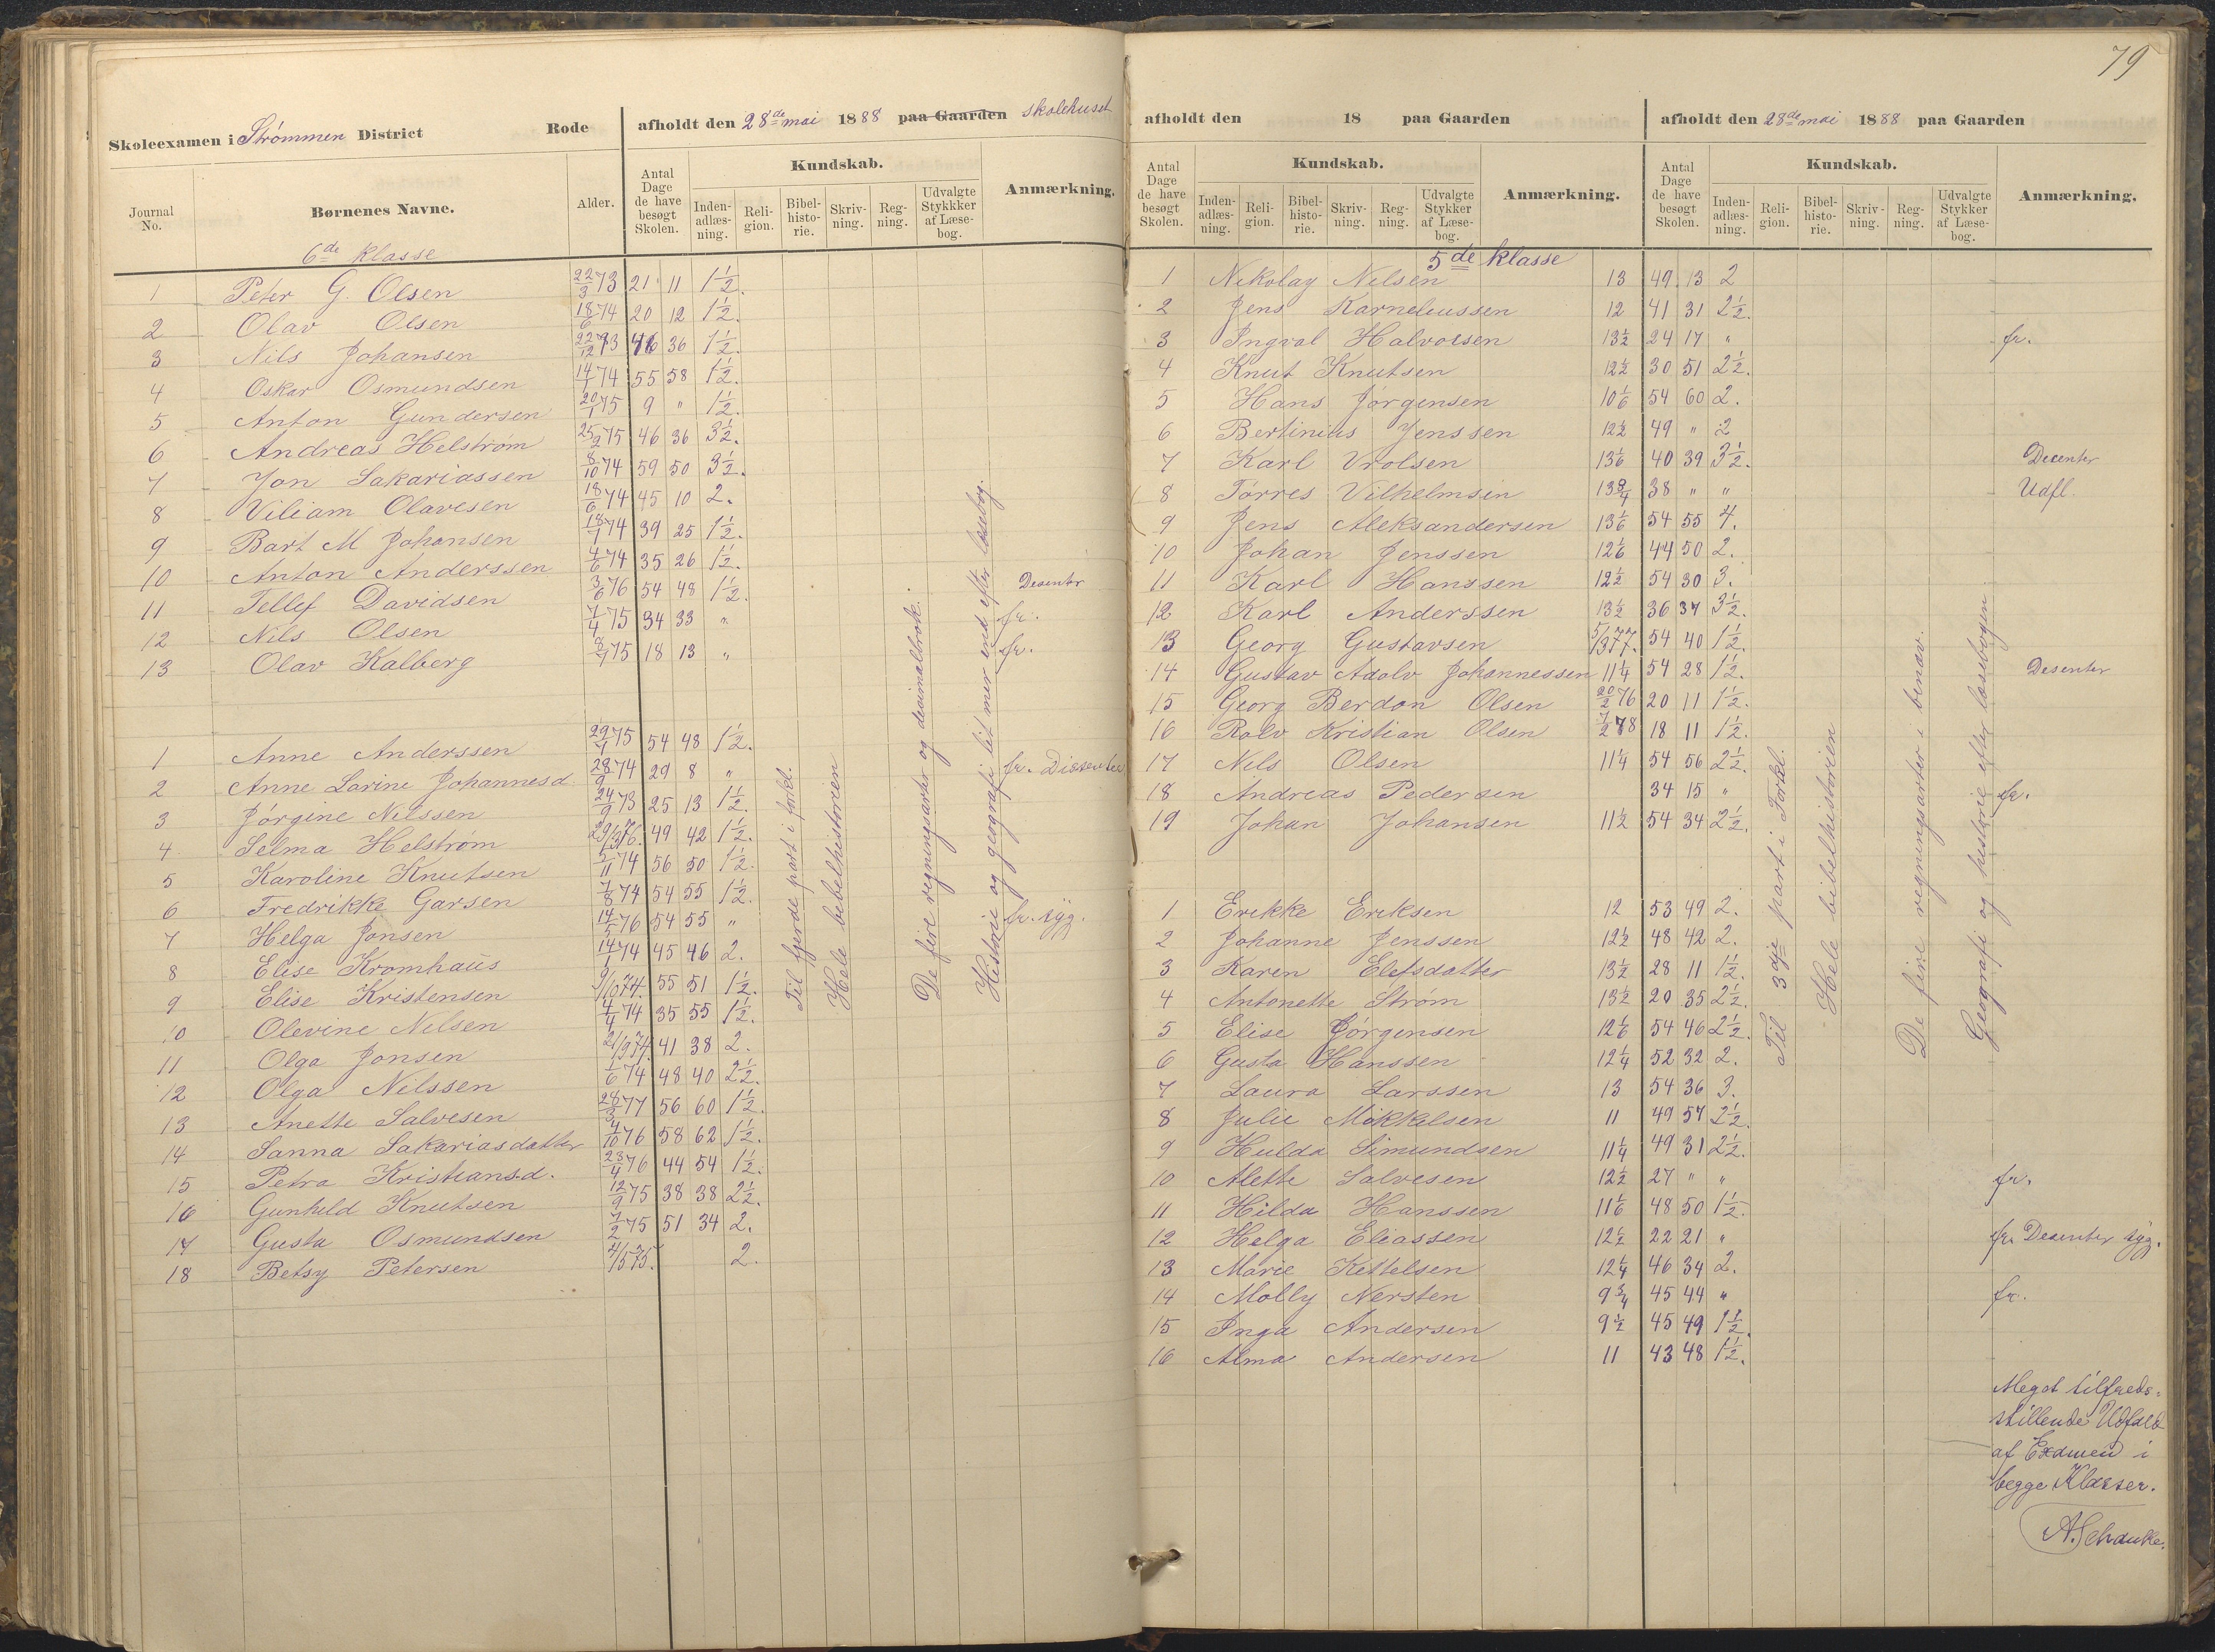 79
Skoleexamen i Strømmen District Rode afholdt den 28de mai 1888 paa Gaarden skolehuset
Journal No. Børnenes Navne. Alder. Antal Dage de have besøgt Skolen. Kundskab. Indenadlæsning. Religion. Bibelhistorie. Skrivning. Regning. Udvalgte Stykkker af Læsebog. Anmærkning.
6de klasse
1 Peter G. Olsen 22/3 73 21 11 1½.
2 Olav Olsen 18/6 74 20 12 1½.
3 Nils Johansen 22/12 73 46 36 1½.
4 Oskar Osmundsen 14/1 74 55 58 1½.
5 Anton Gundersen 20/1 75 9 " 1½.
6 Andreas Helstrøm 25/2 75 46 36 3½.
7 Jon Sakariassen 8/10 74 59 50 3½.
8 Viliam Olavesen 18/6 74 45 10 2.
9 Bart M Johansen 18/1 74 39 25 1½.
10 Anton Anderssen 4/6 74 35 26 1½.
11 Tellef Davidsen 3/6 76 54 48 1½. Desenter
12 Nils Olsen 7/4 75 34 33 " fr.
13 Olav Kalberg 75 18 13 " fr.
1 Anne Anderssen 29/1 75 54 48 1½.
2 Anne Larine Johannesd. 28/9 74 29 8 " fr. Dissenter
3 Jørgine Nilssen 24/9 73 25 13 1½.
4 Selma Helstrøm 29/3 76. 49 42 1½.
5 Karoline Knutsen 5/11 74 56 50 1½.
6 Fredrikke Garsen 7/8 74 54 55 1½.
7 Helga Jonsen 14/5 76 54 55 " fr. syg.
8 Elise Kromhaus 14/1 74 45 46 2.
9 Elise Kristensen 9/10 74. 55 51 1½.
10 Olevine Nilsen 4/4 74 35 55 1½.
11 Olga Jonsen 21/9 74. 41 38 2.
12 Olga Nilssen 1/6 74 48 40 2½.
13 Anette Salvesen 28/3 77 56 60 1½.
14 Sanna Sakariasdatter 4/10 76 58 62 1½.
15 Petra Kristiansd. 23/4 76 44 54 1½.
16 Gunhild Knutsen 12/9 75 38 38 2½.
17 Gusta Osmundsen 7/2 75 51 34 2.
18 Betsy Petersen 4/5 75. 2.
Til fjerde part i forkl.
Hele bebelhistorien
De fire regningsarter og desimalbrøk.
Historie og geografi lit mer end efter læsebog.
afholdt den 18 paa Gaarden afholdt den 28de mai 1888 paa Gaarden
Antal Dage de have besøgt Skolen. Kundskab. Indenadlæsning. Religion. Bibelhistorie. Skrivning. Regning. Udvalgte Stykker af Læsebog. Anmærkning. Antal Dage de have besøgt Skolen. Kundskab. Indenadlæsning. Religion. Bibelhistorie. Skrivning. Regning. Udvalgte Stykker af Læsebog. Anmærkning.
5de klasse
1 Nikolay Nilsen 13 49 13 2
2 Jens Karneliussen 12 41 31 2½.
3 Ingval Halvorsen 13½ 24 17 " fr.
4 Knut Knutsen 12½ 30 51 2½.
5 Hans Jørgensen 10 1/6 54 60 2.
6 Bertinius Jenssen 12½ 49 " 2
7 Karl Vrolsen 13 1/6 40 39 3½. Decenter
8 Tørres Vilhelmsen 13 3/4 38 " " Udfl.
9 Jens Aleksandersen 13 1/6 54 55 4.
10 Johan Jenssen 12 1/6 44 50 2.
11 Karl Hanssen 12½ 54 30 3.
12 Karl Anderssen 13½ 36 37 3½.
13 Georg Gustavsen 5/3 77. 54 40 1½.
14 Gustav Adolv Johannessen 11¼ 54 28 1½. Desenter
15 Georg Berdon Olsen 20/2 76 20 11 1½.
16 Rolv Kristian Olsen 7/2 78 18 11 1½.
17 Nils Olsen 11¼ 54 56 2½.
18 Andreas Pedersen 34 15 " fr.
19 Johan Johansen 11½ 54 34 2½.
1 Erikke Eriksen 12 53 49 2.
2 Johanne Jenssen 12½ 48 42 2.
3 Karen Elefsdatter 13½ 28 11 1½.
4 Antonette Strøm 13½ 20 35 2½.
5 Elise Jørgensen 12 1/6 54 46 2½.
6 Gusta Hanssen 12¼ 52 32 2.
7 Laura Larssen 13 54 36 3.
8 Julie Mikkelsen 11 49 57 2½.
9 Hulda Simundsen 11¼ 49 31 2½.
10 Alette Salvesen 12½ 27 " " fr.
11 Hilda Hanssen 11 1/6 48 50 1½.
12 Helga Eliassen 12½ 22 21 " fr. Desenter syg.
13 Marie Kettelsen 12¼ 46 34 2.
14 Molly Nersten 9¾ 45 44 " fr.
15 Inga Andersen 9½ 45 49 1½.
16 Alma Andersen 11 43 48 1½.
Til 3dje part i Forkl.
Hele bibelhistorien
De fire regningsarter i benæv.
Geografi og historie efter læsebogen.
Meget tilfreds=
stillende Udfald
af Examen i
begge Klasser.
A. Schanke.